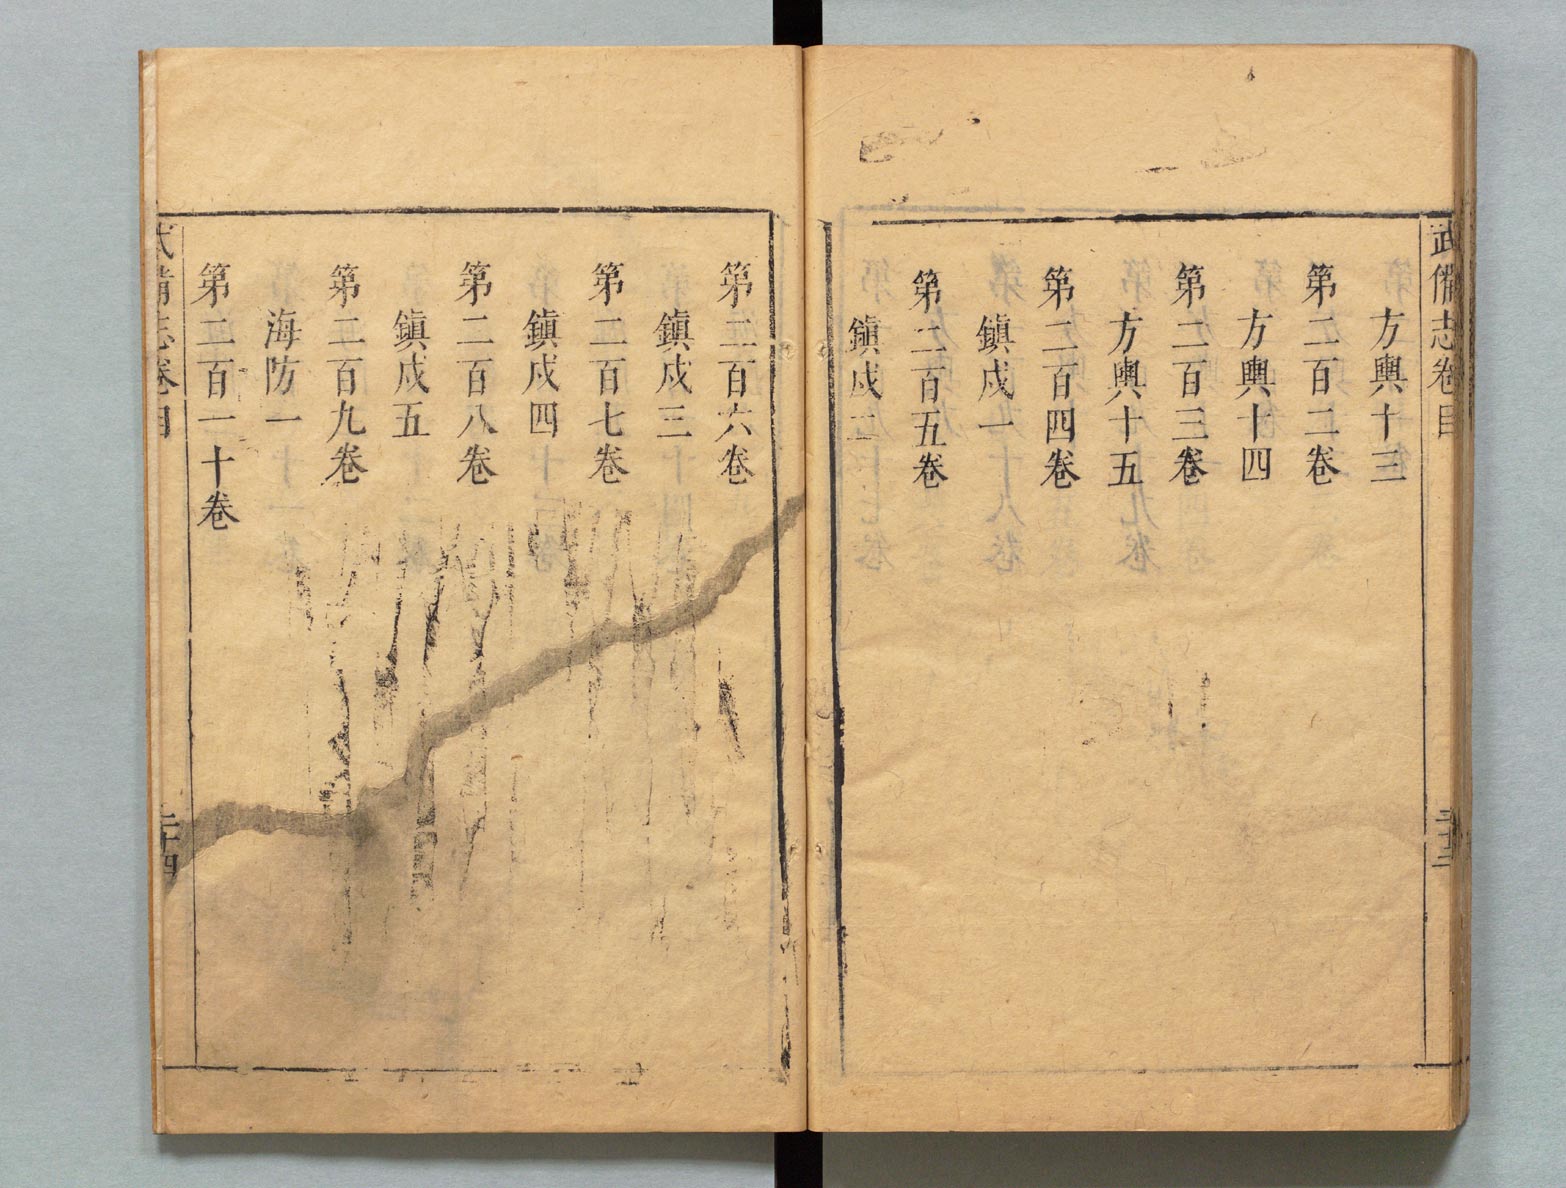 武備志卷目
二十三
方輿十三
第二百二卷
方輿十四
第二百三卷
方輿十五
第二百四卷
鎮戍一
第二百五卷
鎮戍二
第二百六卷
鎮戍三
第二百七卷
鎮戍四
第二百八卷
鎮戍五
第二百九卷
海防一
第二百一十卷
武備志卷目
二十四